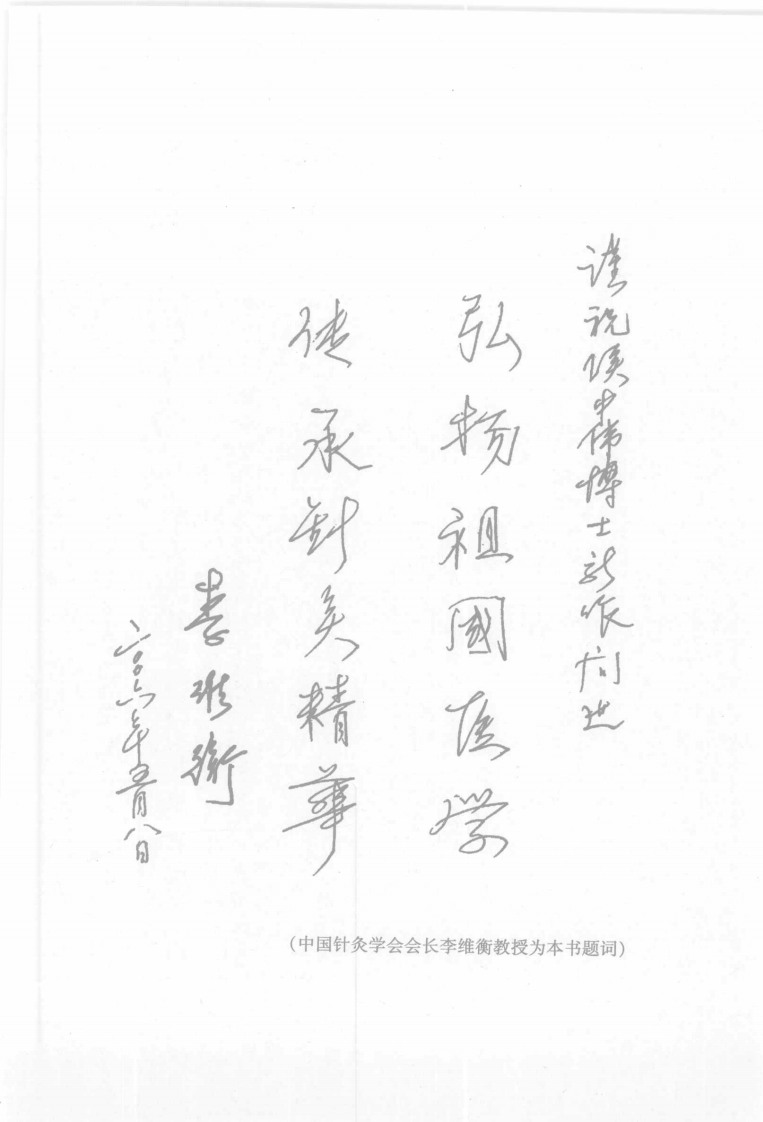 谨祝侯中伟博士新作问世
弘扬祖國医学
传承针灸精華
李维衡
二〇〇六年五月八日
(中国针灸学会会长李维衡教授为本书题词)